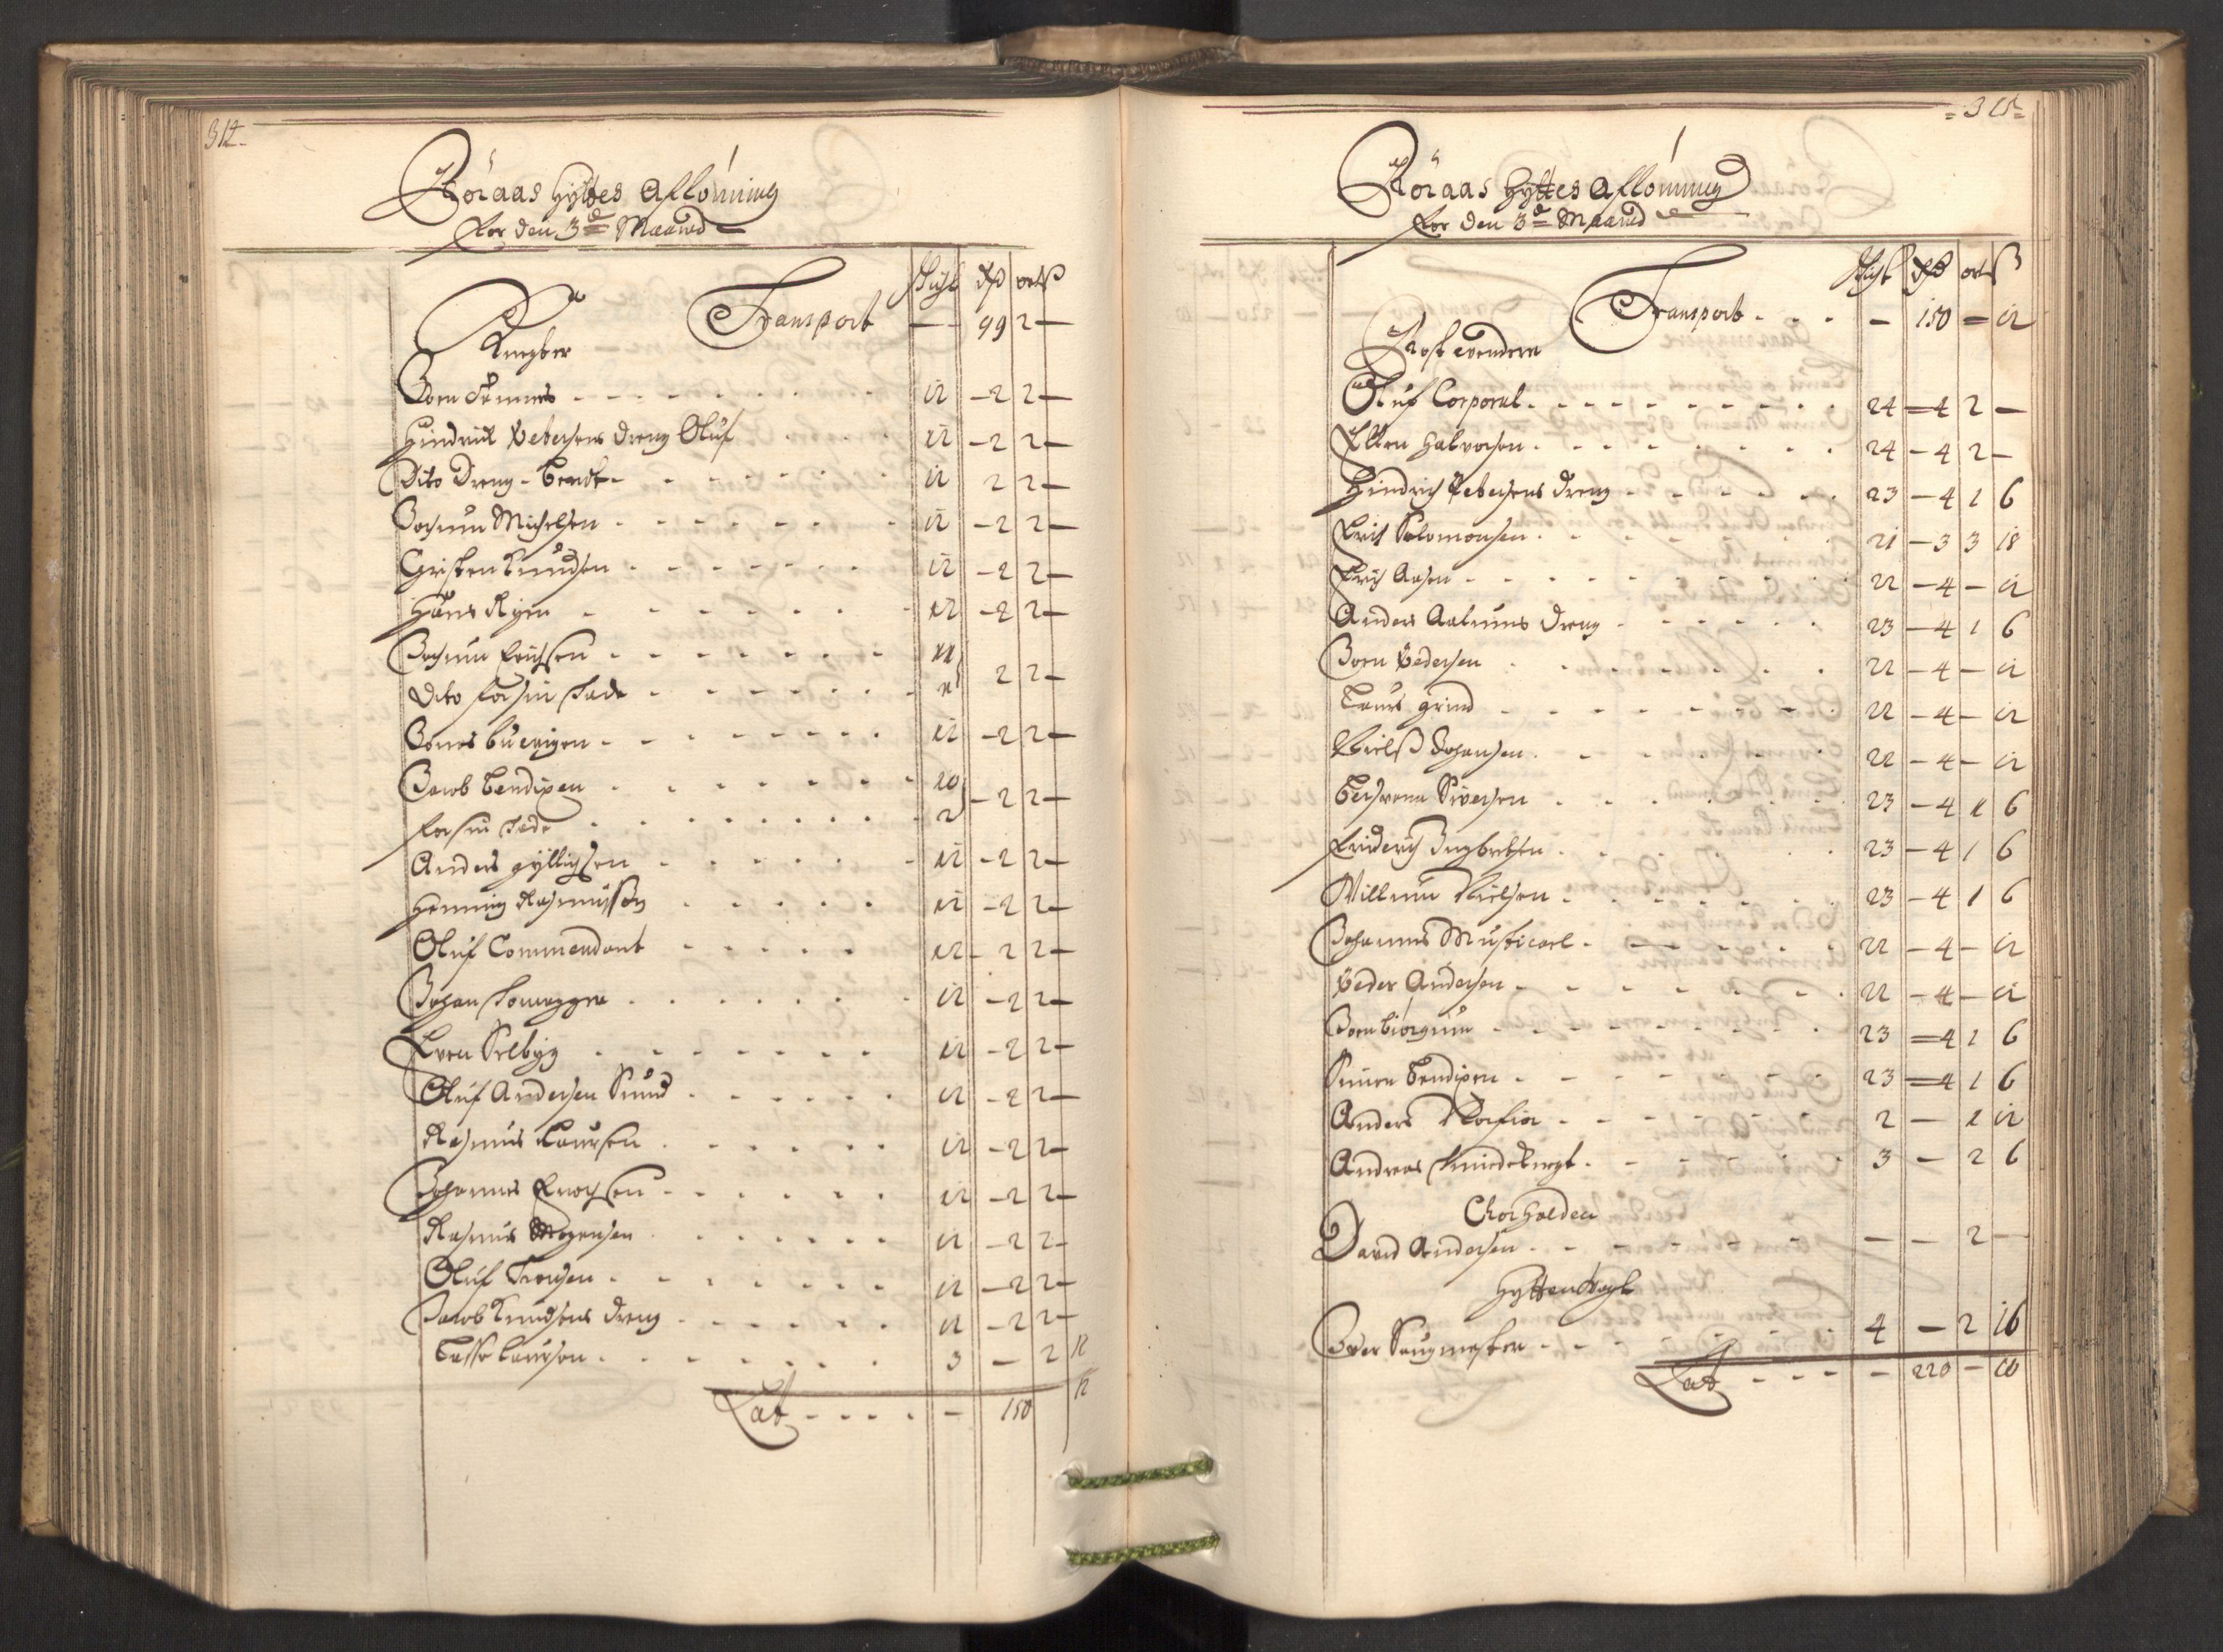 314
Röraas Hyttes Aflönning
For den 3de Maaned
Schicht Rdr ort ß
Transport — 99 2 —
Knegter
Joen
12 - 2 2 —
Hindrich Pedersens dreng Oluf 12 - 2 2 —
Dito dreng - Bendt 12 2 2 —
Jochum Michelsen 12 - 2 2 —
Cristen Knudsen 12 - 2 2 —
Hans Ryen 12 - 2 2 —
Jochum Erichsen 11
Dito forhen 1 2 2 —
Jonas 12 - 2 2 —
Jacob Bendixen 10
forhen 2 - 2 2 —
Anders Gyllichsen 12 - 2 2 —
Henning Rasmussøn 12 - 2 2 —
Oluf Commendant 12 - 2 2 —
Johan 12 - 2 2 —
Even Selbyg 12 - 2 2 —
Oluf Andersen Sund 12 - 2 2 —
Rasmus Laursen 12 - 2 2 —
Johannes Enochsen 12 - 2 2 —
Rasmus Mogensen 12 - 2 2 —
Oluf Iversen 12 - 2 2 —
Jacob Knudsens dreng 12 - 2 2 —
Lasse Laursen 3 — 2 12
Lat — 150 12
= 315 =
Röraas Hyttes Aflönning
For den 3de Maaned
Schicht Rdr ort ß
Transport — 150 — 12
Rostevendere
Oluf Corporal 24 — 4 2 —
Ellen Halvorsen 24 — 4 2 —
Hindrich Pedersens dreng 23 — 4 1 6
Erich Salomonsen 21 — 3 3 18
Erich Aasen 22 — 4 — 12
Anders Aalmns dreng 23 — 4 1 6
Joen Pedersen 22 — 4 — 12
Laurs grind 22 — 4 — 12
Nielß Johansen 22 — 4 — 12
Siversen 23 — 4 1 6
Friderich Ingbretsen 23 — 4 1 6
Willum Nielsen 23 — 4 1 6
Johannes Musticarl 22 — 4 — 12
Peder Andersen 22 — 4 — 12
Joen Biörgum 23 — 4 1 6
Simen Bendixen 23 — 4 1 6
Anders 2 — 1 12
Andreas Smideknegt 3 — 2 6
Chorholder
David Andersen — — 2 —
Hyttenvogt
Iver Saugmester 4 — 2 16
Lat — 220 — 10